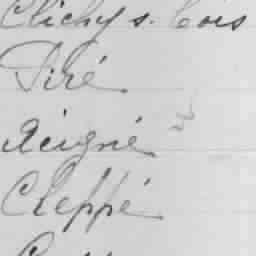 Clichy s. Bois
Piré
Acigné
Cleppé